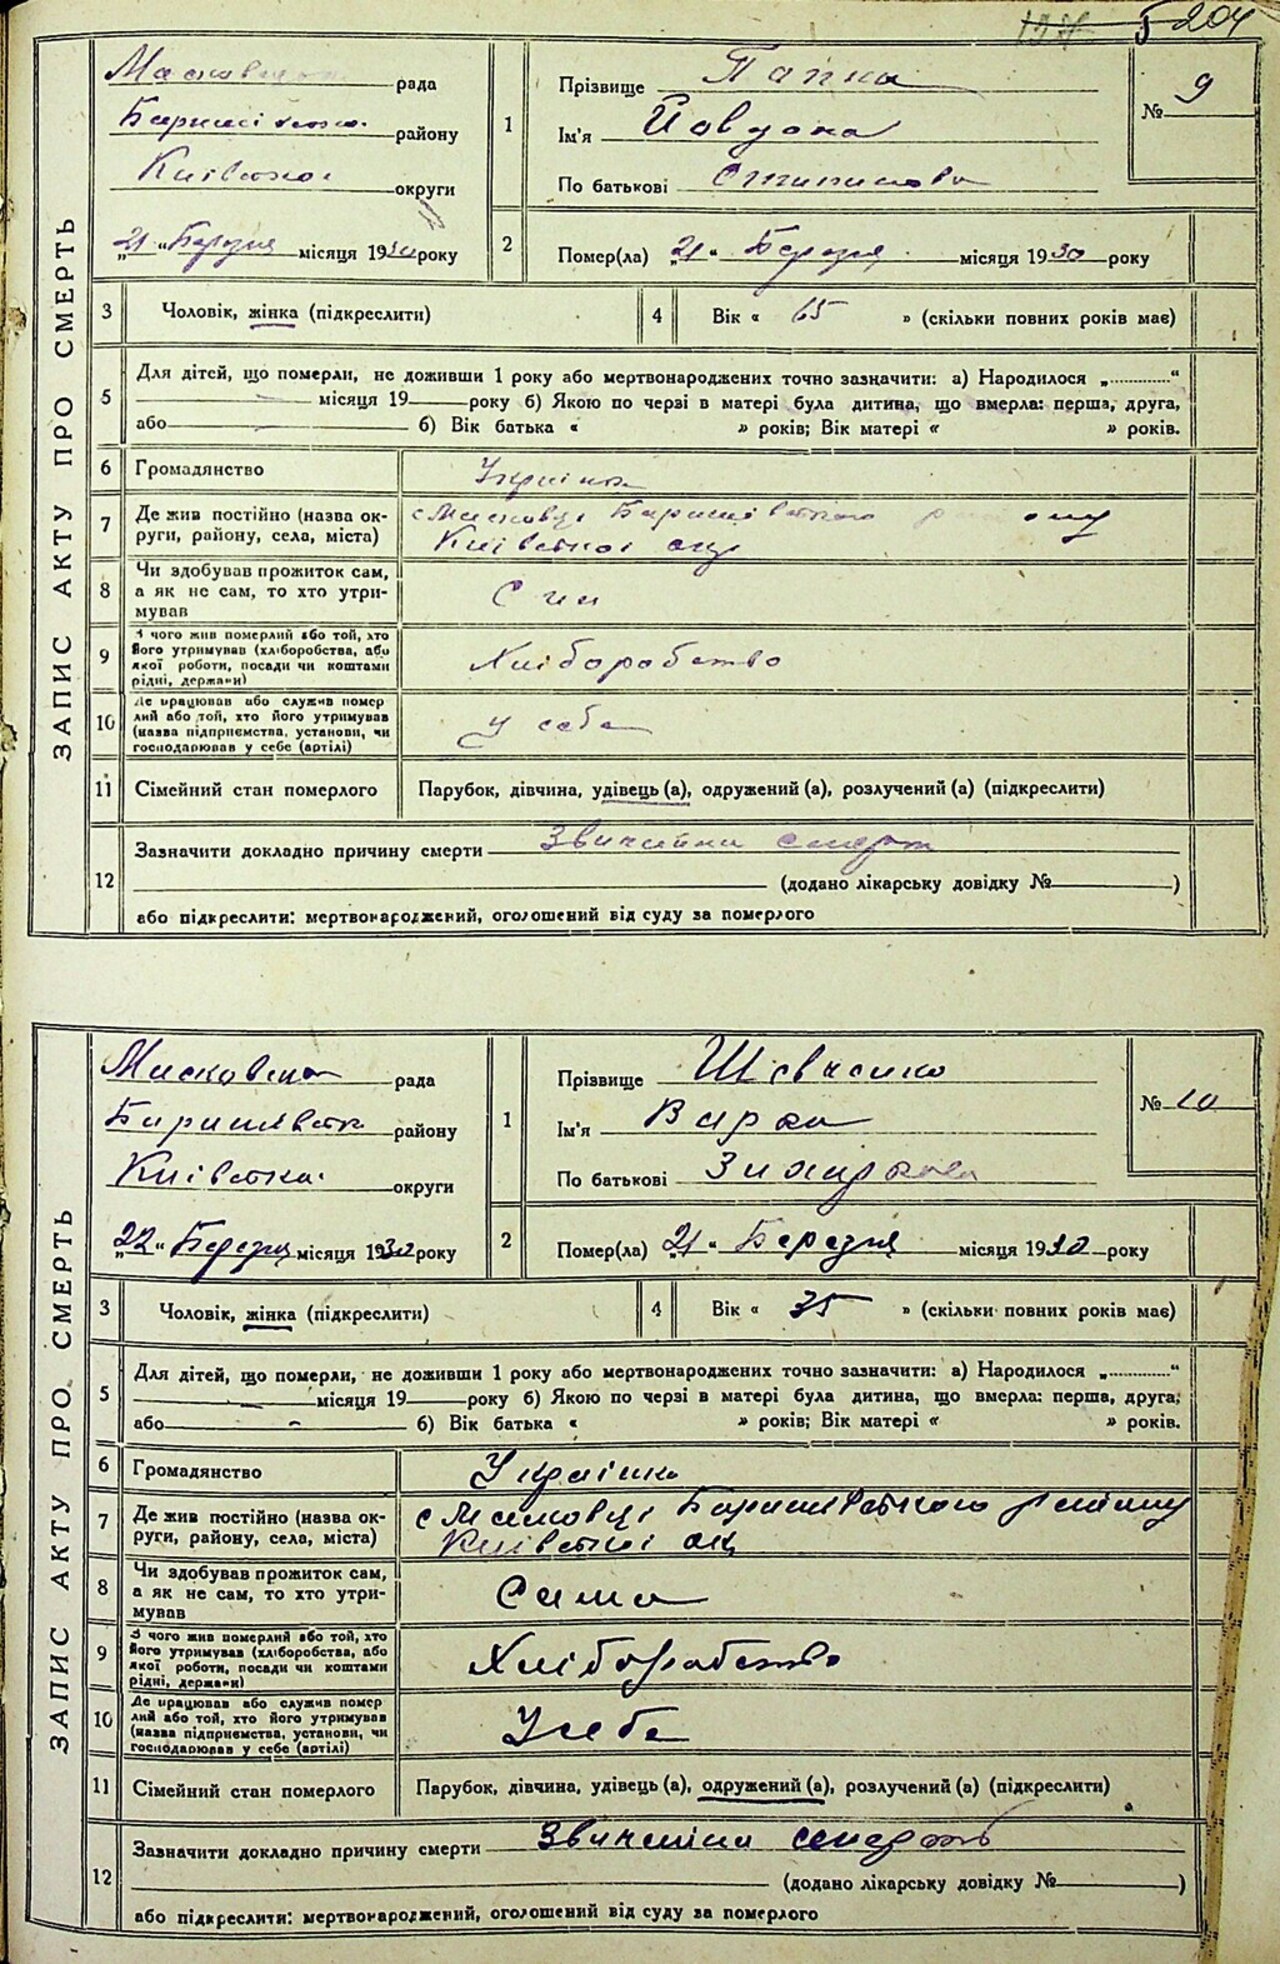 204
ЗАПИС АКТУ ПРО СМЕРТЬ
рада
району
Київської округи
„21“ Березня місяця 1930 року
1
Прізвище Папка
Ім'я Йовдоха
По батькові
№ 9
2
Помер(ла) „21“ Березня місяця 1930 року
3 Чоловік, жінка (підкреслити)
4 Вік « 65 » (скільки повних років має)
5
Для дітей, що померли, не доживши 1 року або мертвонароджених точно зазначити: а) Народилося „............“
місяця 19 року б) Якою по черзі в матері була дитина, що вмерла: перша, друга,
або б) Вік батька « » років; Вік матері « » років.
6 Громадянство Українка
7 Де жив постійно (назва ок-
руги, району, села, міста)
с Масковці Баришівського району
Київської окр
8 Чи здобував прожиток сам,
а як не сам, то хто утри-
мував
Син
9 З чого жив померлий або той, хто
його утримував (хліборобства, або
якої роботи, посади чи коштами
рідні, держави)
Хліборобство
10 Де працював або служив помер
лий або той, хто його утримував
(назва підприємства, установи, чи
господарював у себе (артілі)
у себе
11 Сімейний стан померлого Парубок, дівчина, удівець (а), одружений (а), розлучений (а) (підкреслити)
12
Зазначити докладно причину смерти Звичайна смерть
(додано лікарську довідку № )
або підкреслити: мертвонароджений, оголошений від суду за померлого
ЗАПИС АКТУ ПРО СМЕРТЬ
Масковецька рада
Баришівськ району
Київської округи
„22“ Березня місяця 1930 року
1
Прізвище Шевченко
Ім'я Варка
По батькові Захаркова
№ 10
2
Помер(ла) „21“ Березня місяця 1930 року
3 Чоловік, жінка (підкреслити)
4 Вік « 35 » (скільки повних років має)
5
Для дітей, що померли, не доживши 1 року або мертвонароджених точно зазначити: а) Народилося „............“
місяця 19 року б) Якою по черзі в матері була дитина, що вмерла: перша, друга,
або б) Вік батька « » років; Вік матері « » років.
6 Громадянство Українка
7 Де жив постійно (назва ок-
руги, району, села, міста)
с Масковці Баришівського району
Київської окр
8 Чи здобував прожиток сам,
а як не сам, то хто утри-
мував
Сама
9 З чого жив померлий або той, хто
його утримував (хліборобства, або
якої роботи, посади чи коштами
рідні, держави)
Хліборобство
10 Де працював або служив помер
лий або той, хто його утримував
(назва підприємства, установи, чи
господарював у себе (артілі)
У себе
11 Сімейний стан померлого Парубок, дівчина, удівець (а), одружений (а), розлучений (а) (підкреслити)
12
Зазначити докладно причину смерти смерть
(додано лікарську довідку № )
або підкреслити: мертвонароджений, оголошений від суду за померлого